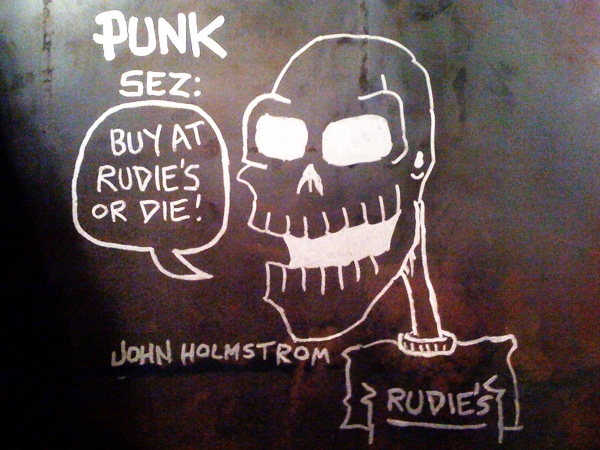 PUNK
SEZ:
BUY AT
RUDIE'S
OR DIE!
JOHN HOLMSTROM
RUDIE'S